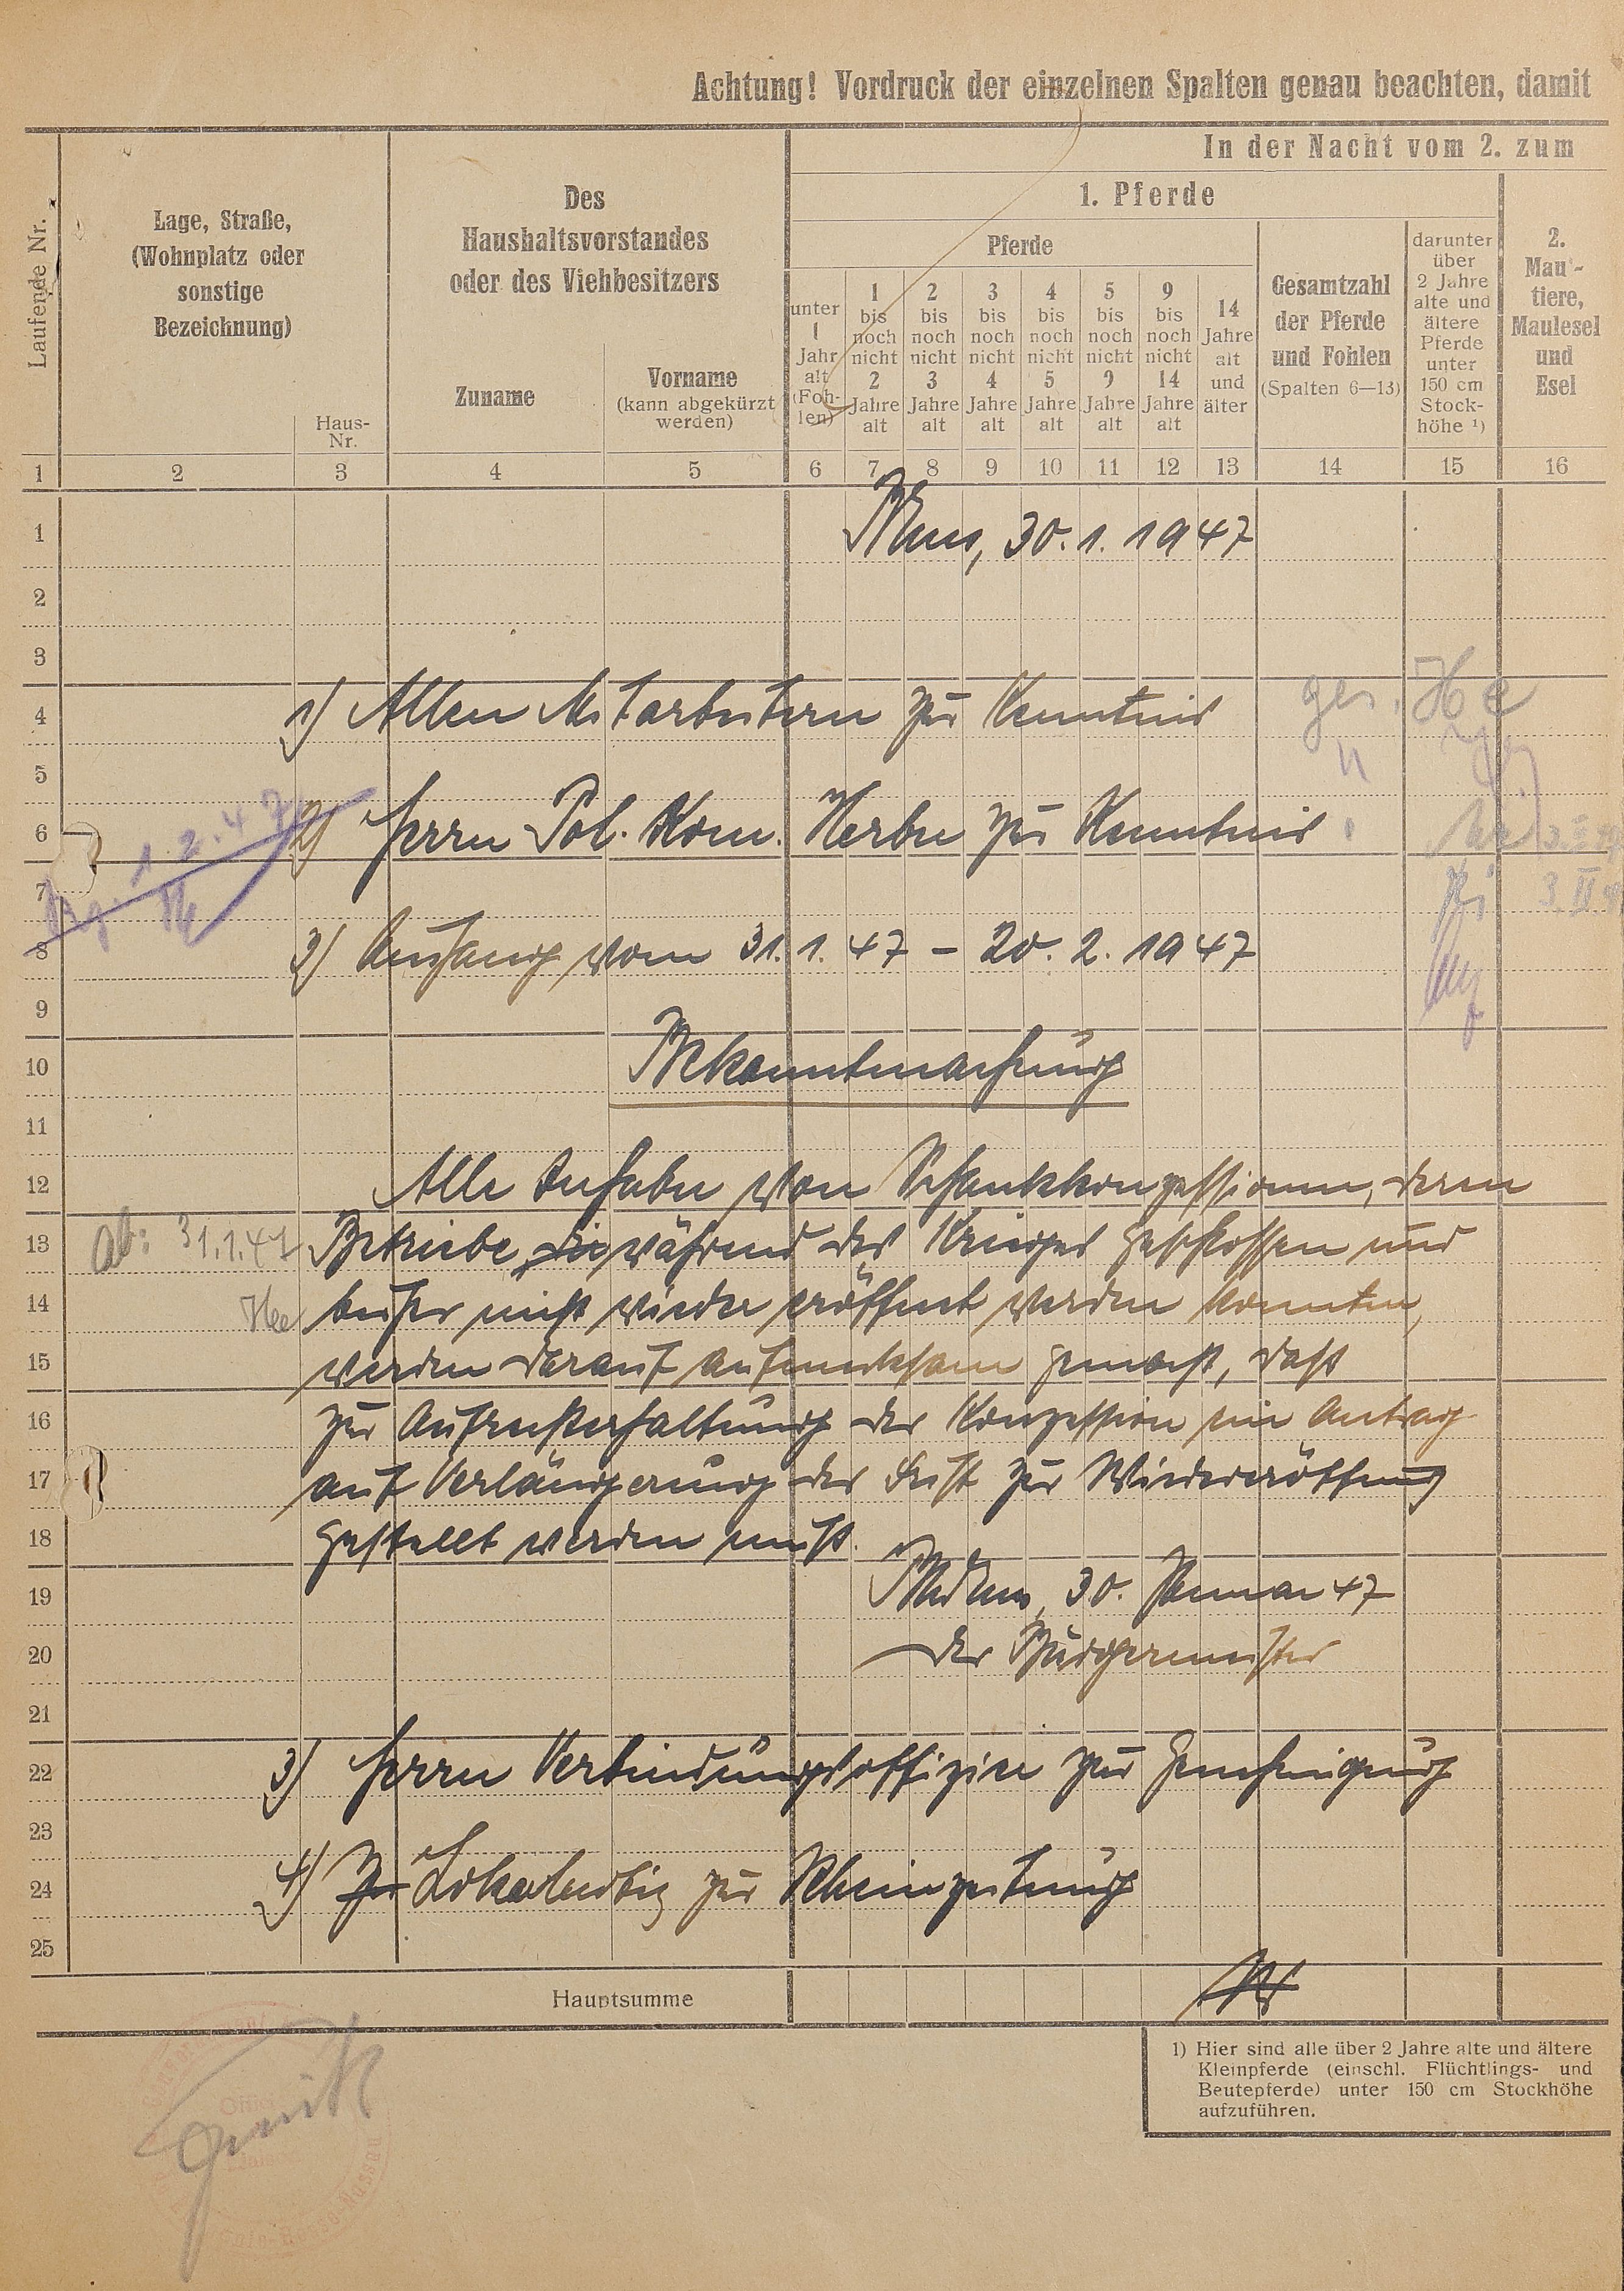 Achtung! Vordruck der einzelnen Spalten genau beachten, damit
In der Nacht vom 2. zum
Laufende Nr.
Lage, Straße,
(Wohnplatz oder
sonstige
Bezeichnung)
Haus-
Nr.
Des
Haushaltsvorstandes
oder des Viehbesitzers
Zuname
Vorname
(kann abgekürzt
werden)
1. Pferde
Pferde
unter
1
Jahr
alt
(Foh-
len)
1
bis
noch
nicht
2
Jahre
alt
2
bis
noch
nicht
3
Jahre
alt
3
bis
noch
nicht
4
Jahre
alt
4
bis
noch
nicht
5
Jahre
alt
5
bis
noch
nicht
9
Jahre
alt
9
bis
noch
nicht
14
Jahre
alt
14
Jahre
alt
und
älter
Gesamtzahl
der Pferde
und Fohlen
(Spalten 6—13)
darunter
über
2 Jahre
alte und
ältere
Pferde
unter
150 cm
Stock-
höhe ¹)
2.
Mau'-
tiere,
Maulesel
und
Esel
1 2 3 4 5 6 7 8 9 10 11 12 13 14 15 16
1
30. 1. 1947
2
3
4
1) Allen Mitarbeitern zur Kenntnis
ges. He
5
6
2) Herrn Pol. Kom. zur Kenntnis
1.2.47
7
8
3) Aushang vom 31. 1. 47 – 20. 2. 1947
9
10
Bekanntmachung
11
12
Alle Inhaber von Schankkonzessionen, deren
13
ab: 31.1.47
Betriebe die während des Krieges geschlossen und
14
bisher nicht wieder eröffnet werden konnten,
15
werden darauf aufmerksam gemacht, daß
16
zur Aufrechterhaltung der Konzession ein Antrag
17
auf Verlängerung der Frist zur Wiedereröffnung
18
gestellt werden muß.
19
30. Januar 47
20
Der Bürgermeister
21
22
3) Herrn Verbindungsoffizier zur Genehmigung
23
24
4) Zur Lokalnotiz zur Rheinzeitung
25
Hauptsumme
1) Hier sind alle über 2 Jahre alte und ältere
Kleinpferde (einschl. Flüchtlings- und
Beutepferde) unter 150 cm Stockhöhe
aufzuführen.